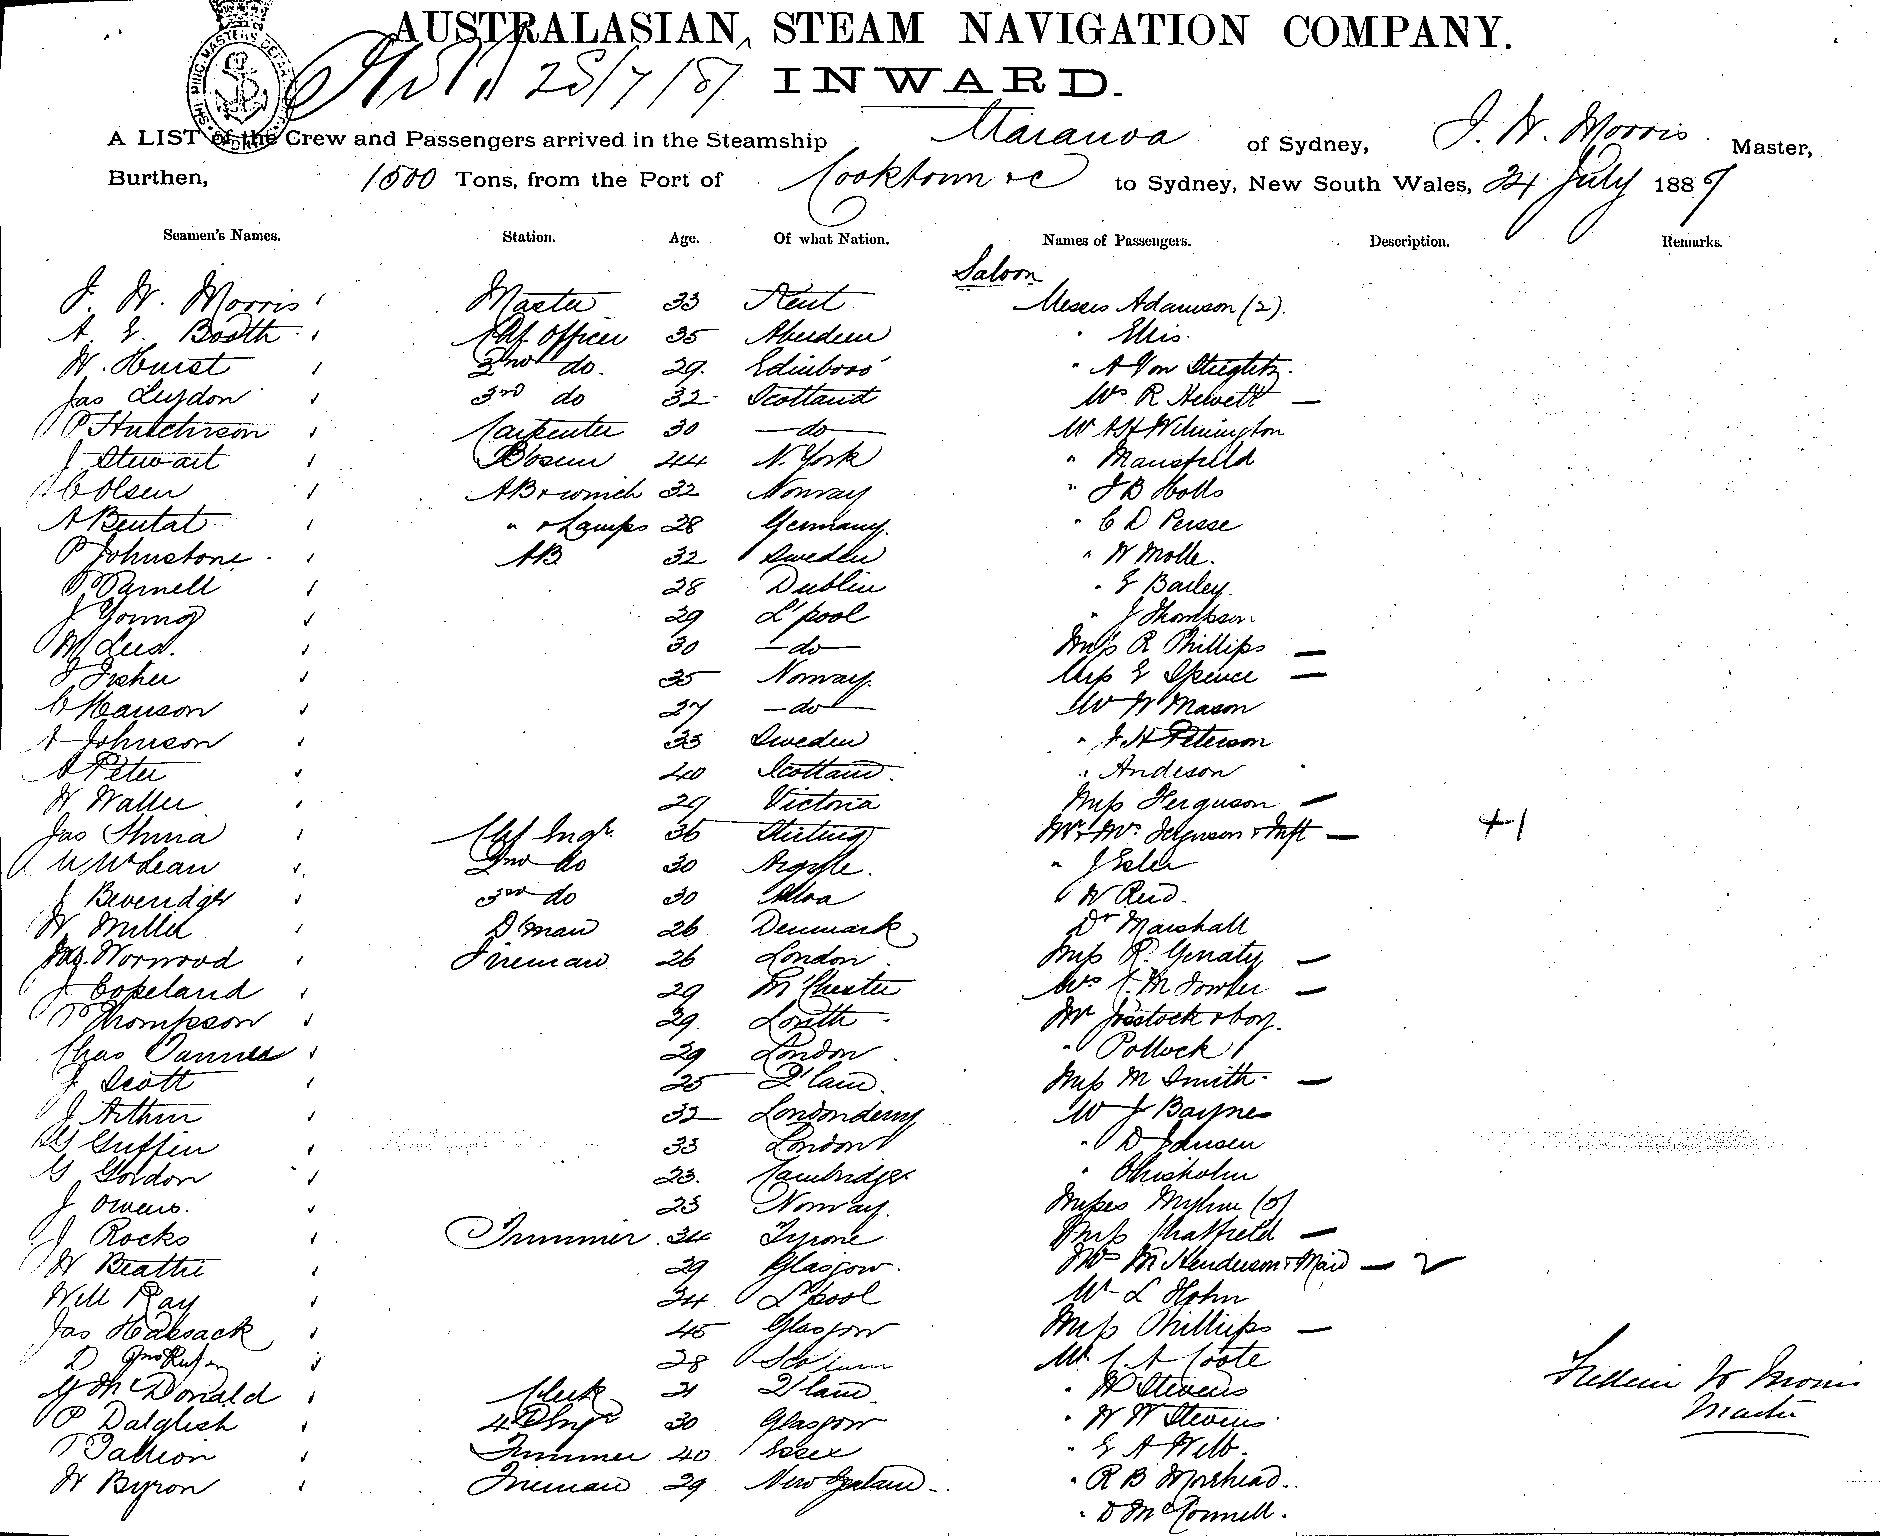 AUSTRALASIAN STEAM NAVIGATION COMPANY.
25/7/87 INWARD.
A LIST of the Crew and Passengers arrived in the Steamship Maranoa of Sydney, J. W. Morris Master,
Burthen, 1500 Tons, from the Port of Cooktown &c to Sydney, New South Wales, 24 July 1887
Seamen's Names. Station. Age. Of what Nation. Names of Passengers. Description. Remarks.
Saloon
J. W. Morris Master 33 Kent Messrs Adamson (2).
A. E. Booth Chf Officer 35 Aberdeen " Ellis.
W. Hurst 2nd do. 29. Edinboro' " A Von Stieglitz.
Jas Leydon 3rd do 32 Scotland Mrs R Hewett —
P Hutchison Carpenter 30 —do— Mr A H Wilmington
J Stewart Bosun 44 N. York " Mansfield
C Olsen AB & winch 32 Norway " J B Holls
A Bentat " & Lamps 28 Germany. " C D Persse
P Johnstone AB 32 Sweden " W Molle.
P Parnell 28 Dublin " E Bailey.
J Young 29 L'pool " J Thompson.
W Lees. 30 —do— Miss R Phillips —
J Fisher 35 Norway. Miss E Spence —
C Hanson 27 —do— Mr W Mason
A Johnson 33 Sweden " J H Peterson
A Peter 40 Scotland. " Anderson
W Waller 29 Victoria Miss Ferguson —
Jas Shina Chf Engr. 36 Stirling Mr & Mrs Ferguson & Inft — +1
McLean 2nd do 30 Argyle. " J Esler
J Beveridge 3rd do 30 Alloa " W Reid.
W Miller D'man 26 Denmark Dr Marshall
Norwood Fireman 26 London. Miss R. Geraty —
J Copeland 29 M'Chester Mrs C. M Fowler —
P Thompson 29. Louth. Mr Jostock & boy.
Chas Tanner 29 London " Pollock
J Scott 25 Q'land. Miss M Smith. —
J Arthur 32 Londonderry Mr J Baynes
G Griffin 33 London " D Jansen
G Gordon 23. Cambridge " Chisholm
J Owens. 23 Norway. Misses
J Rocks Trimmer 34 Tyrone Miss Chatfield —
W Beattie 29 Glasgow. Mrs McHenderson & Maid — 2
Will Ray 34 L'pool Mr L Hohn
Jas Hassack 45 Glasgow Miss Phillips —
D 28 Mr C A Coote
G McDonald Clerk 21 Q'land. " W Stevens
P Dalglish 4th Engr 30 Glasgow " W W Stevens.
T Trimmer 40 Essex " E A Webb.
W Byron Fireman 29 New Zealand. " R B Morehead.
" D McConnell.
Frederic W Morris
Master